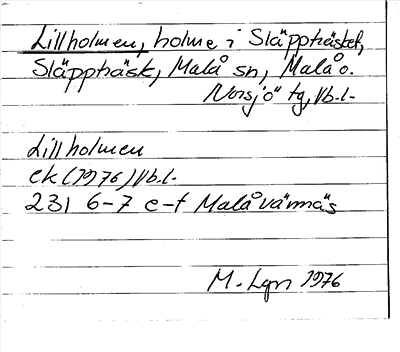 Lillholmen, holme i Släppträsket,
Släppträsk, Malå sn, Malå o.
Norsjö tg, Vb.l.
Lillholmen
ek (1976) Vb.l.
231 6-7 e-f Malåvännäs
M. Lgn 1976